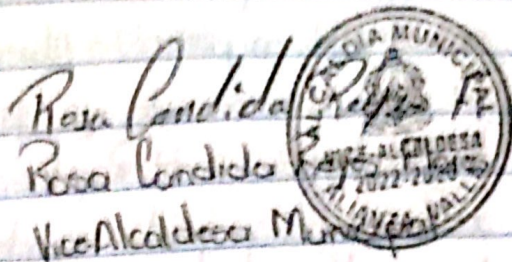 Rosa Candida Reyes
Rosa Candida Reyes
ViceAlcaldesa Municipal
ALCALDIA MUNICIPAL
VICE-ALCALDESA
2022-2026
ALIANZA, VALLE